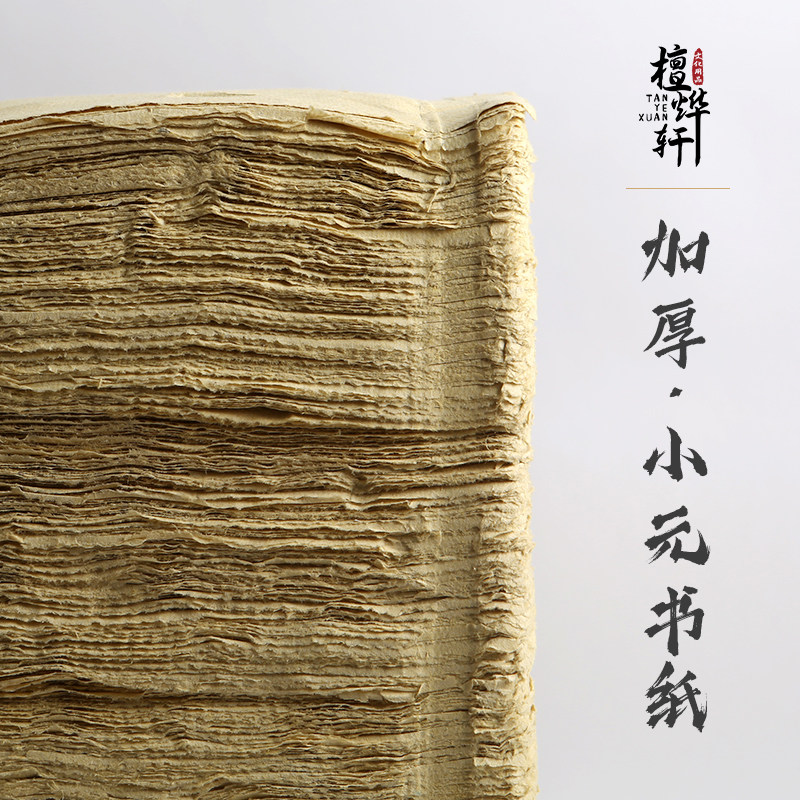 檀烨轩
文化用品
TAN
YE
XUAN
加厚·小元书纸